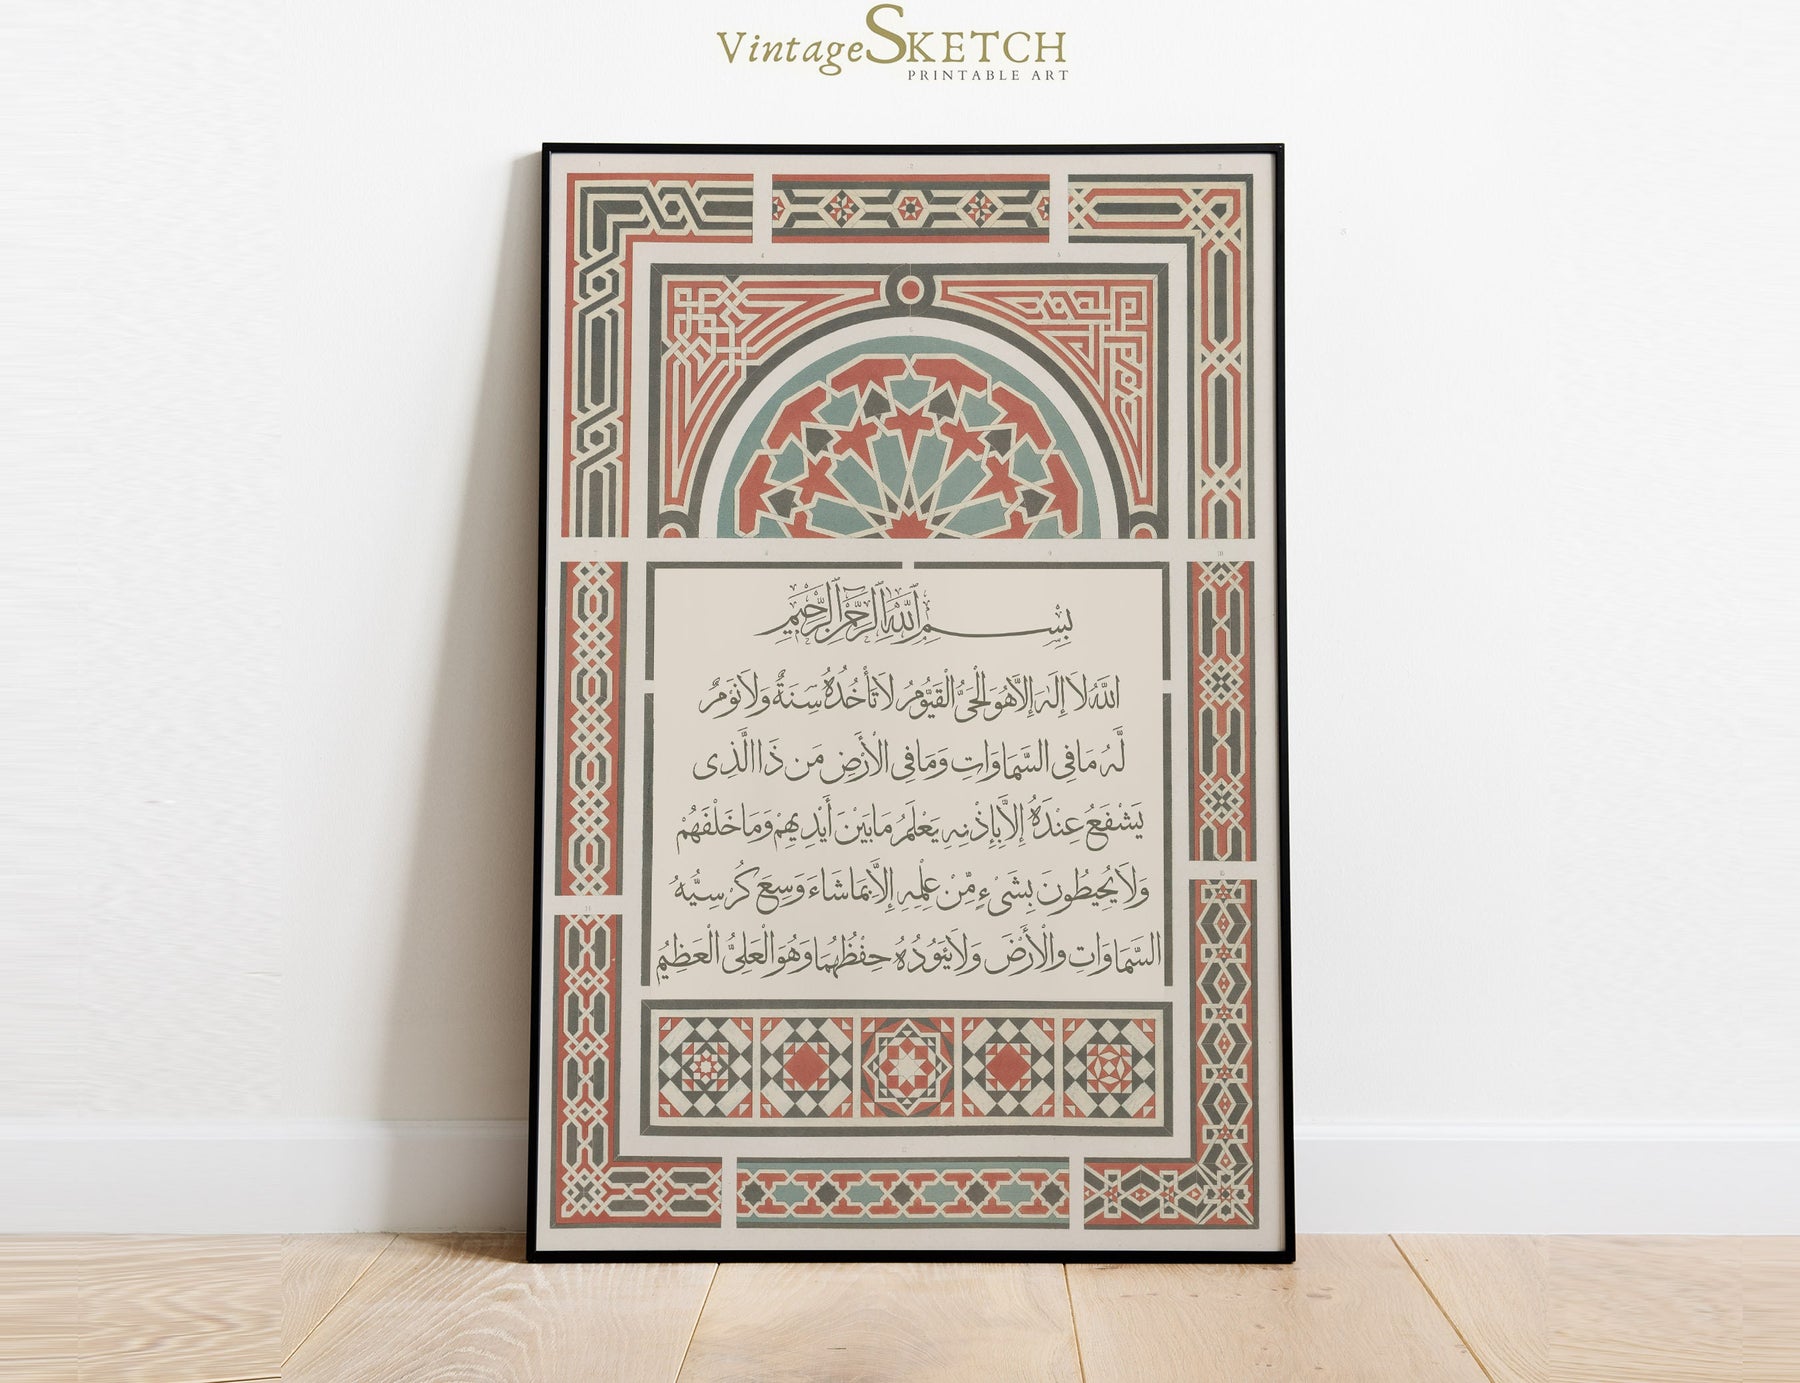 VintageSKETCH
PRINTABLE ART
بِسْمِ اللَّهِ الرَّحْمَٰنِ الرَّحِيمِ
اللَّهُ لَا إِلَٰهَ إِلَّا هُوَ الْحَيُّ الْقَيُّومُ لَا تَأْخُذُهُ سِنَةٌ وَلَا نَوْمٌ
لَّهُ مَا فِي السَّمَاوَاتِ وَمَا فِي الْأَرْضِ مَن ذَا الَّذِي
يَشْفَعُ عِنْدَهُ إِلَّا بِإِذْنِهِ يَعْلَمُ مَا بَيْنَ أَيْدِيهِمْ وَمَا خَلْفَهُمْ
وَلَا يُحِيطُونَ بِشَيْءٍ مِّنْ عِلْمِهِ إِلَّا بِمَا شَاءَ وَسِعَ كُرْسِيُّهُ
السَّمَاوَاتِ والْأَرْضَ وَلَا يَئُودُهُ حِفْظُهُمَا وَهُوَ الْعَلِيُّ الْعَظِيمُ